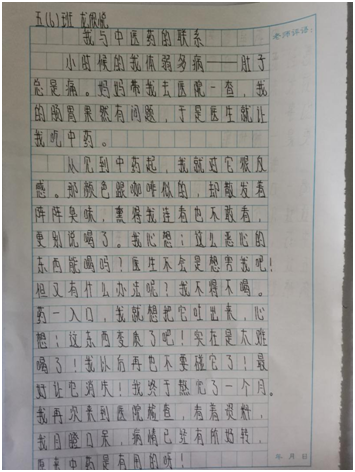 五（6）班
我与中医药的联系
老师评语：
小时候的我体弱多病——肚子
总是痛。妈妈带我去医院一查，我
的肠胃果然有问题，于是医生就让
我吃中药。
从见到中药起，我就对它很反
感。那颜色跟咖啡似的，却散发着
阵阵臭味，熏得我连看也不敢看，
更别说喝了。我心想：这么恶心的
东西能喝吗？医生不会是想害我吧！
但又有什么办法呢？我不得不喝。
药一入口，我就想把它吐出来，心
想：这东西苦来了吧！实在是太难
喝了！我以后再也不要碰它了！最
好让它消失！我终于熬完了一个月。
我再次来到医院检查，看着
我目瞪口呆，病情已经有所好转，
原来中药是有用的呀！
年 月 日